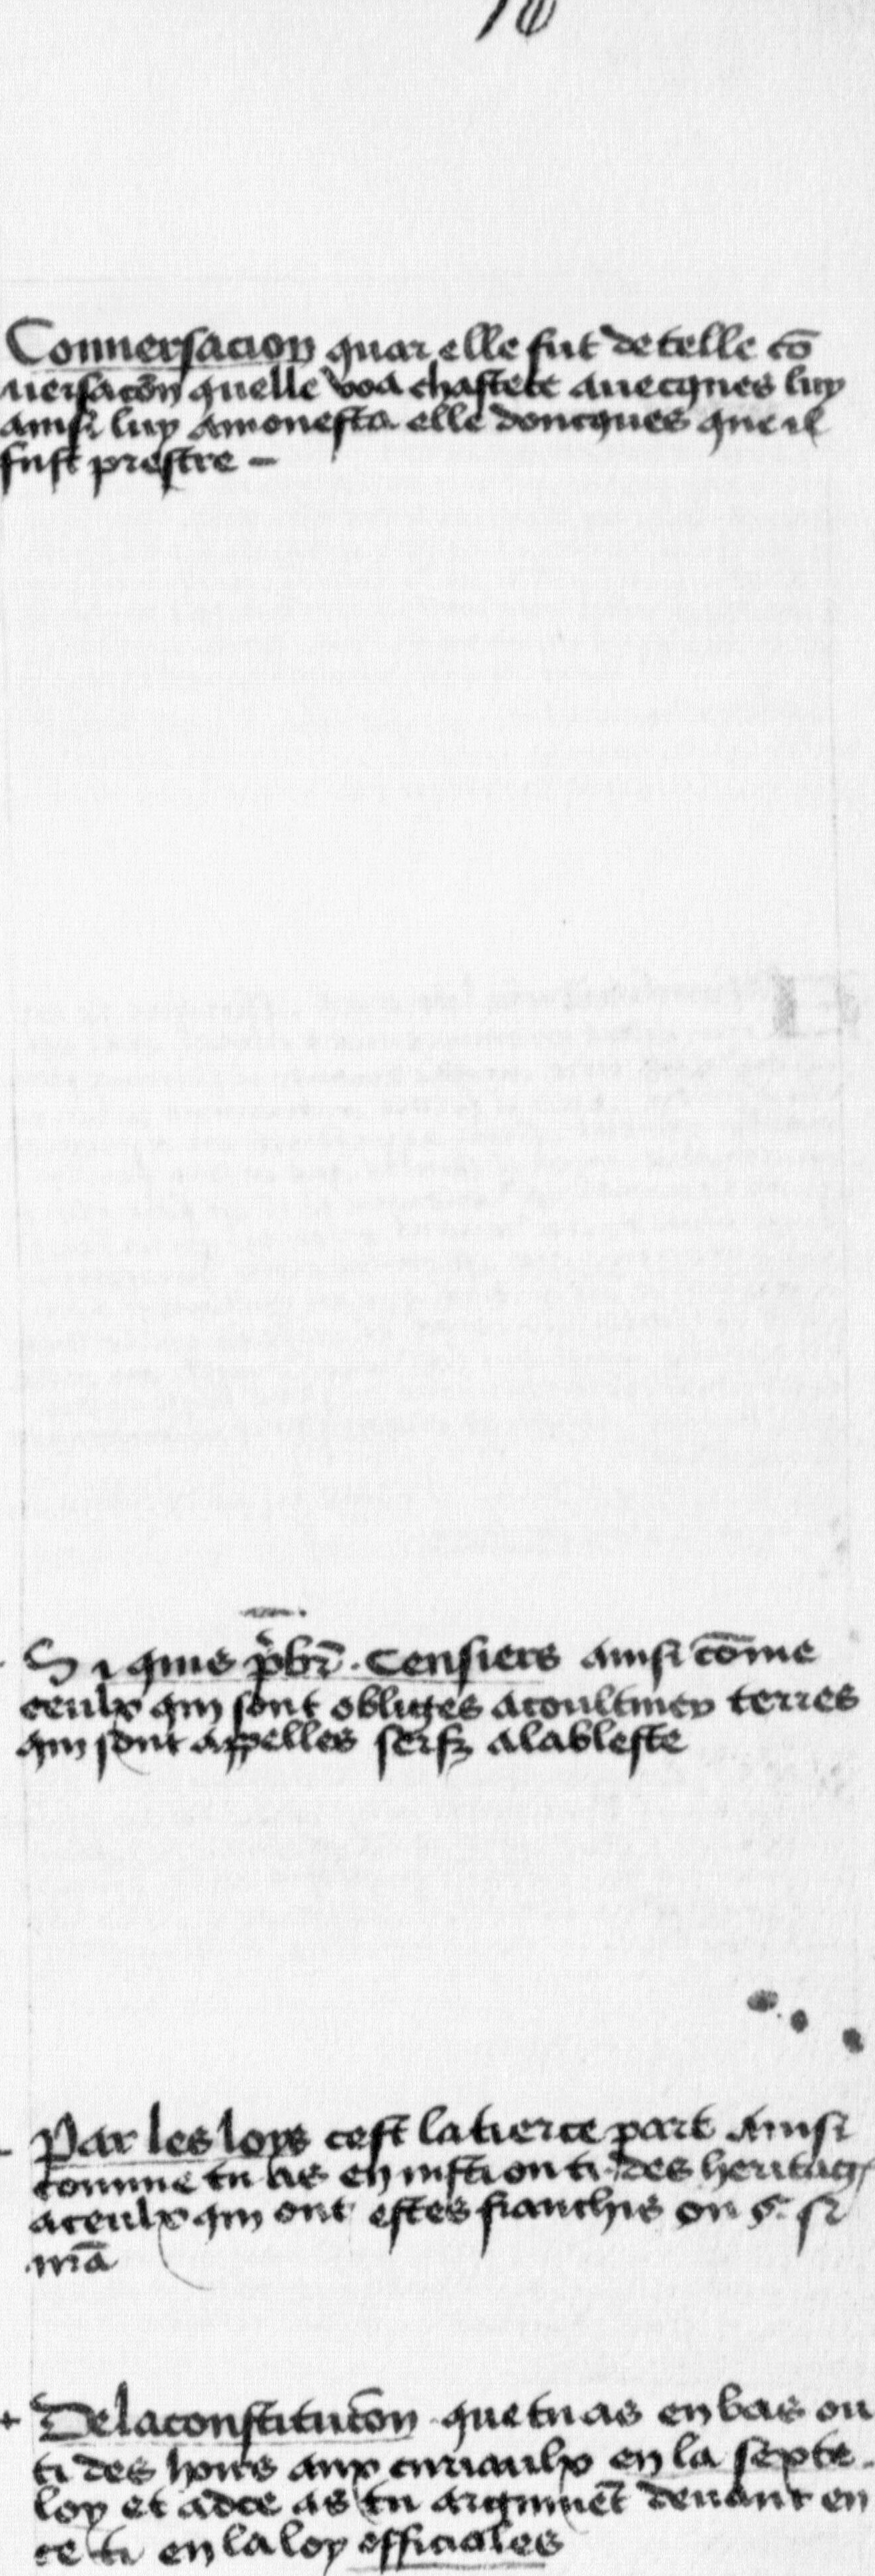 Conuersacion quar elle fut de telle cō
uersacōn quelle voa chastete auecques luy
ainsi luy amonesta elle doncques que il
fust prestre -
Si quis p̄br̄. Censiers ainsi cōme
ceulx qui sont obliges a coultiuer terres
qui sont appelles serfz a la bleste
Par les loys cest la tierce part Ainsi
comme tu as en insti ou ti. des heritag
a ceulx qui ont estes franchis ou §. si
De la constitucōn que tu as en bas ou
ti des hoirs aux curiaulx en la septe
loy et ad ce as tu argumēt deuant en
ce ti en la loy officiales